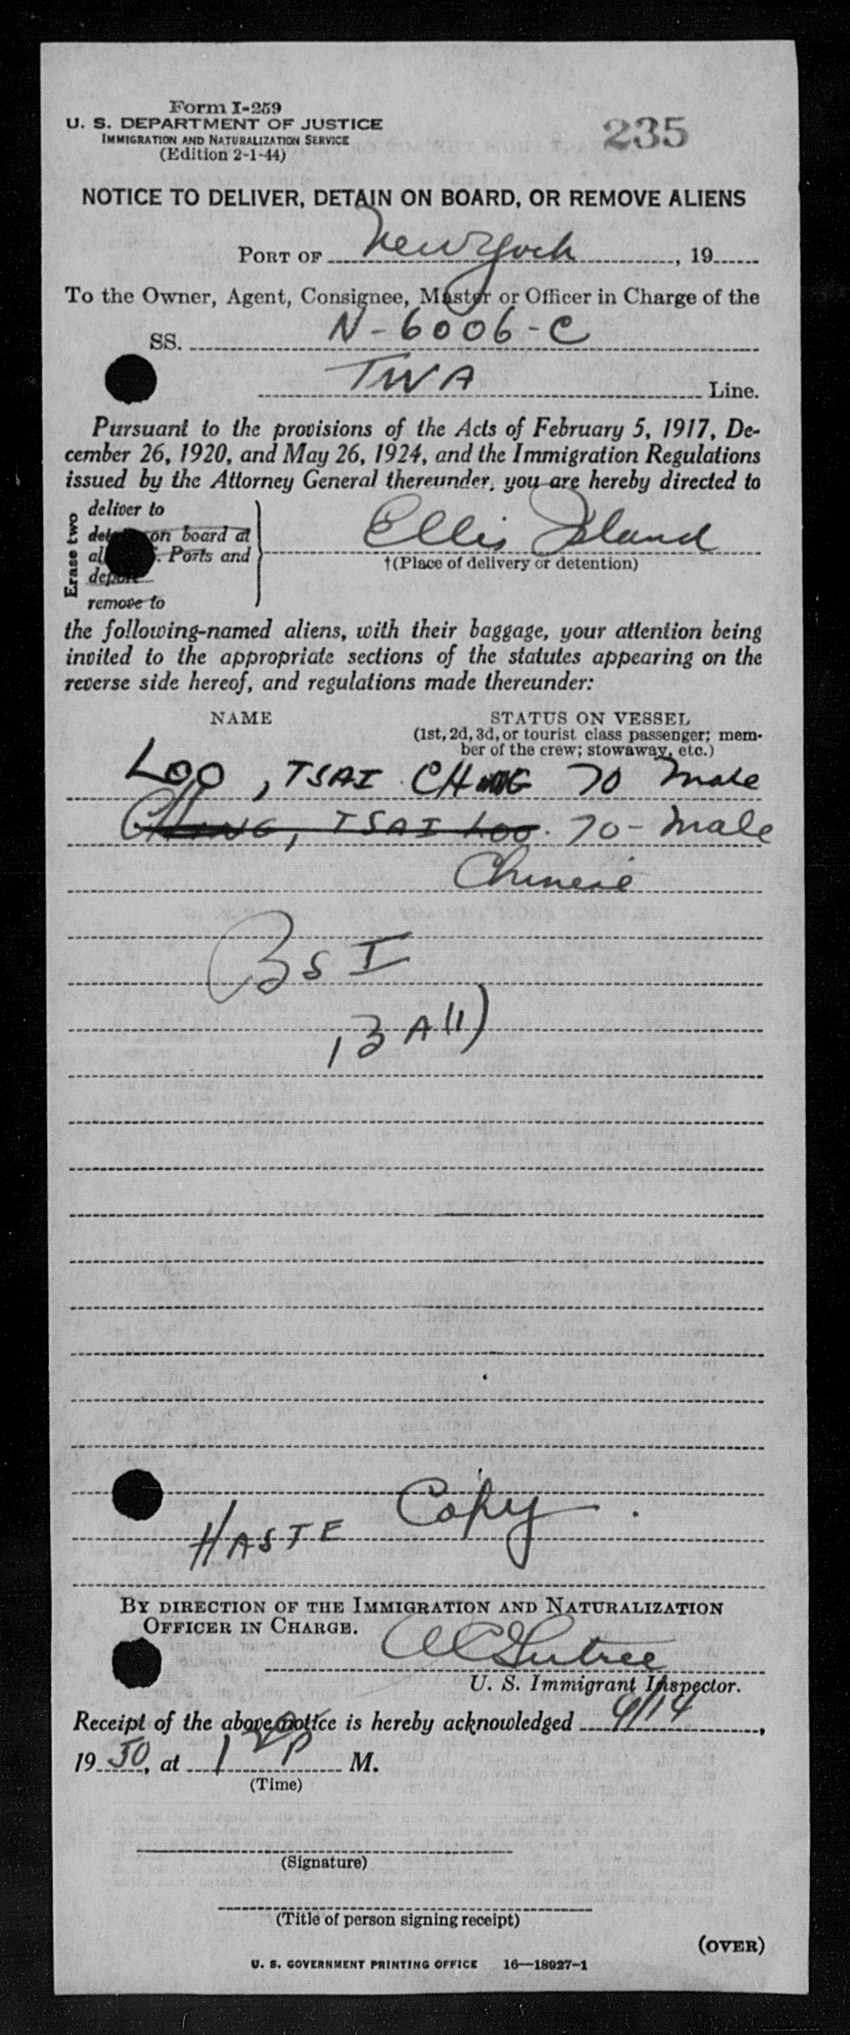 Form I-259
U. S. DEPARTMENT OF JUSTICE
IMMIGRATION AND NATURALIZATION SERVICE
(Edition 2-1-44)
235
NOTICE TO DELIVER, DETAIN ON BOARD, OR REMOVE ALIENS
PORT OF New York, 19
To the Owner, Agent, Consignee, Master or Officer in Charge of the
SS. N-6006-C
TWA Line.
Pursuant to the provisions of the Acts of February 5, 1917, De-
cember 26, 1920, and May 26, 1924, and the Immigration Regulations
issued by the Attorney General thereunder, you are hereby directed to
Erase two
deliver to
on board at
Ports and
remove to
Ellis Island
†(Place of delivery or detention)
the following-named aliens, with their baggage, your attention being
invited to the appropriate sections of the statutes appearing on the
reverse side hereof, and regulations made thereunder:
NAME STATUS ON VESSEL
(1st, 2d, 3d, or tourist class passenger; mem-
ber of the crew; stowaway, etc.)
LOO, TSAI 70 male
CHUNG, TSAI LOO. 70 - Male
Chinese
BSI
HASTE Copy.
BY DIRECTION OF THE IMMIGRATION AND NATURALIZATION
OFFICER IN CHARGE.
U. S. Immigrant Inspector.
Receipt of the above notice is hereby acknowledged 9/14,
19 50, at 1 P M.
(Time)
(Signature)
(Title of person signing receipt)
(OVER)
U. S. GOVERNMENT PRINTING OFFICE 16—18927-1